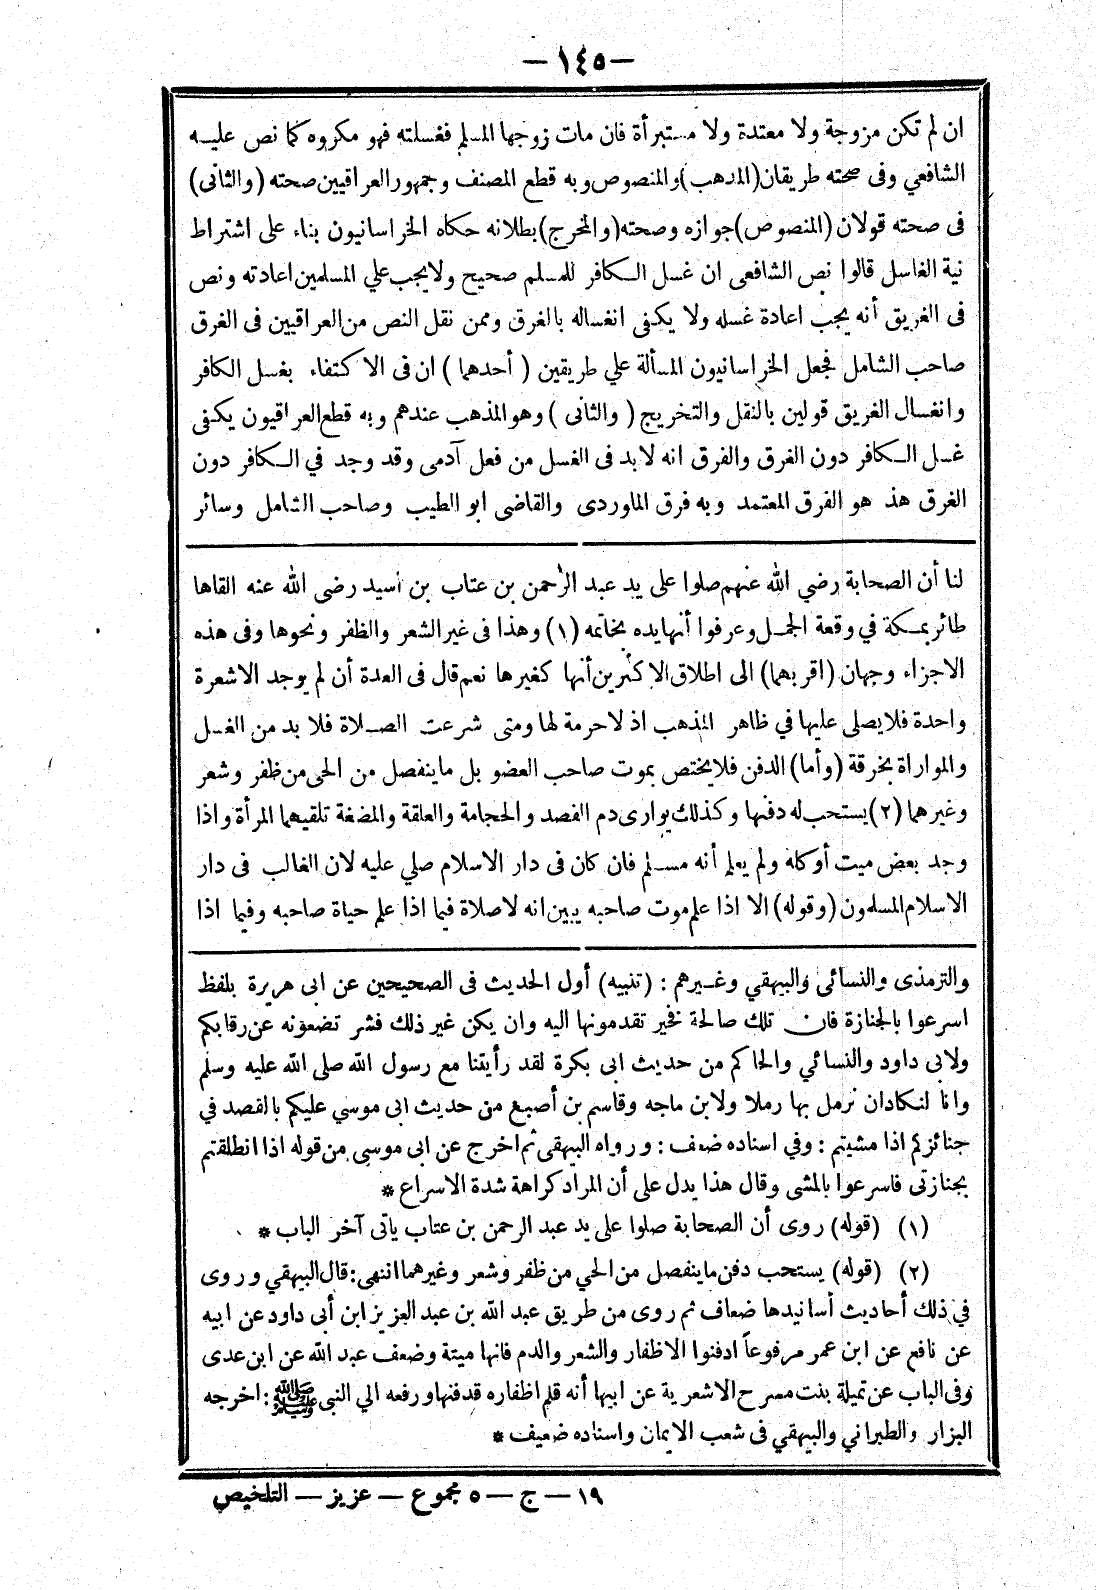 — ١٤٥ —
ان لم تكن مزوجة ولا معتدة ولا مستبرأة فان مات زوجها المسلم فغسلته فهو مكروه كما نص عليه
الشافعي وفى صحته طريقان (المذهب) والمنصوص وبه قطع المصنف وجمهور العراقيين صحته (والثانى)
فى صحته قولان (المنصوص) جوازه وصحته (والمخرج) بطلانه حكاه الخراسانيون بناء على اشتراط
نية الغاسل قالوا نص الشافعى ان غسل الكافر للمسلم صحيح ولا يجب علي المسلمين اعادته ونص
فى الغريق أنه يجب اعادة غسله ولا يكفى انغساله بالغرق وممن نقل النص من العراقيين فى الغرق
صاحب الشامل فجعل الخراسانيون المسألة علي طريقين ( أحدهما ) ان فى الاكتفاء بغسل الكافر
وانغسال الغريق قولين بالنقل والتخريج ( والثانى ) وهو المذهب عندهم وبه قطع العراقيون يكفى
غسل الكافر دون الغرق والفرق انه لابد فى الغسل من فعل آدمى وقد وجد في الكافر دون
الغرق هذ هو الفرق المعتمد وبه فرق الماوردى والقاضى ابو الطيب وصاحب الشامل وسائر
لنا أن الصحابة رضي الله عنهم صلوا على يد عبد الرحمن بن عتاب بن أسيد رضى الله عنه القاها
طائر بمكة في وقعة الجمل وعرفوا أنها يده بخاتمه (١) وهذا فى غير الشعر والظفر ونحوها وفى هذه
الاجزاء وجهان (اقربهما) الى اطلاق الاكثرين أنها كغيرها نعم قال فى العدة أن لم يوجد الاشعرة
واحدة فلا يصلى عليها في ظاهر المذهب اذ لا حرمة لها ومتى شرعت الصلاة فلا بد من الغسل
والمواراة بخرقة (وأما) الدفن فلا يختص بموت صاحب العضو بل ما ينفصل من الحى من ظفر وشعر
وغيرهما (٢) يستحب له دفنها وكذلك يوارى دم الفصد والحجامة والعلقة والمضغة تلقيهما المرأة واذا
وجد بعض ميت أو كله ولم يعلم أنه مسلم فان كان فى دار الاسلام صلي عليه لان الغالب فى دار
الاسلام المسلمون (وقوله) الا اذا علم موت صاحبه يبين انه لا صلاة فيما اذا علم حياة صاحبه وفيما اذا
والترمذى والنسائى والبيهقي وغيرهم : (تنبيه) أول الحديث فى الصحيحين عن ابى هريرة بلفظ
اسرعوا بالجنازة فان تلك صالحة فخير تقدمونها اليه وان يكن غير ذلك فشر تضعونه عن رقابكم
ولابى داود والنسائي والحاكم من حديث ابى بكرة لقد رأيتنا مع رسول الله صلى الله عليه وسلم
وانا لنكادان نرمل بها رملا ولابن ماجه وقاسم بن أصبغ من حديث ابى موسي عليكم بالقصد في
جنائزكم اذا مشيتم : وفي اسناده ضعف : ورواه البيهقى ثم اخرج عن ابى موسى من قوله اذا انطلقتم
بجنازتى فاسرعوا بالمشى وقال هذا يدل على أن المراد كراهة شدة الاسراع *
(١) (قوله) روى أن الصحابة صلوا على يد عبد الرحمن بن عتاب يأتى آخر الباب *
(٢) (قوله) يستحب دفن ما ينفصل من الحي من ظفر وشعر وغيرهما انتهى : قال البيهقي وروى
في ذلك أحاديث أسانيدها ضعاف ثم روى من طريق عبد الله بن عبد العزيز ابن أبى داود عن ابيه
عن نافع عن ابن عمر مرفوعاً ادفنوا الاظفار والشعر والدم فانها ميتة وضعف عبد الله عن ابن عدى
وفى الباب عن تميلة بنت مسرح الاشعرية عن ابيها أنه قلم اظفاره فدفنها ورفعه الي النبى ﷺ : اخرجه
البزار والطبراني والبيهقي فى شعب الايمان واسناده ضعيف *
١٩ — ج — ٥ مجموع — عزيز — التلخيص